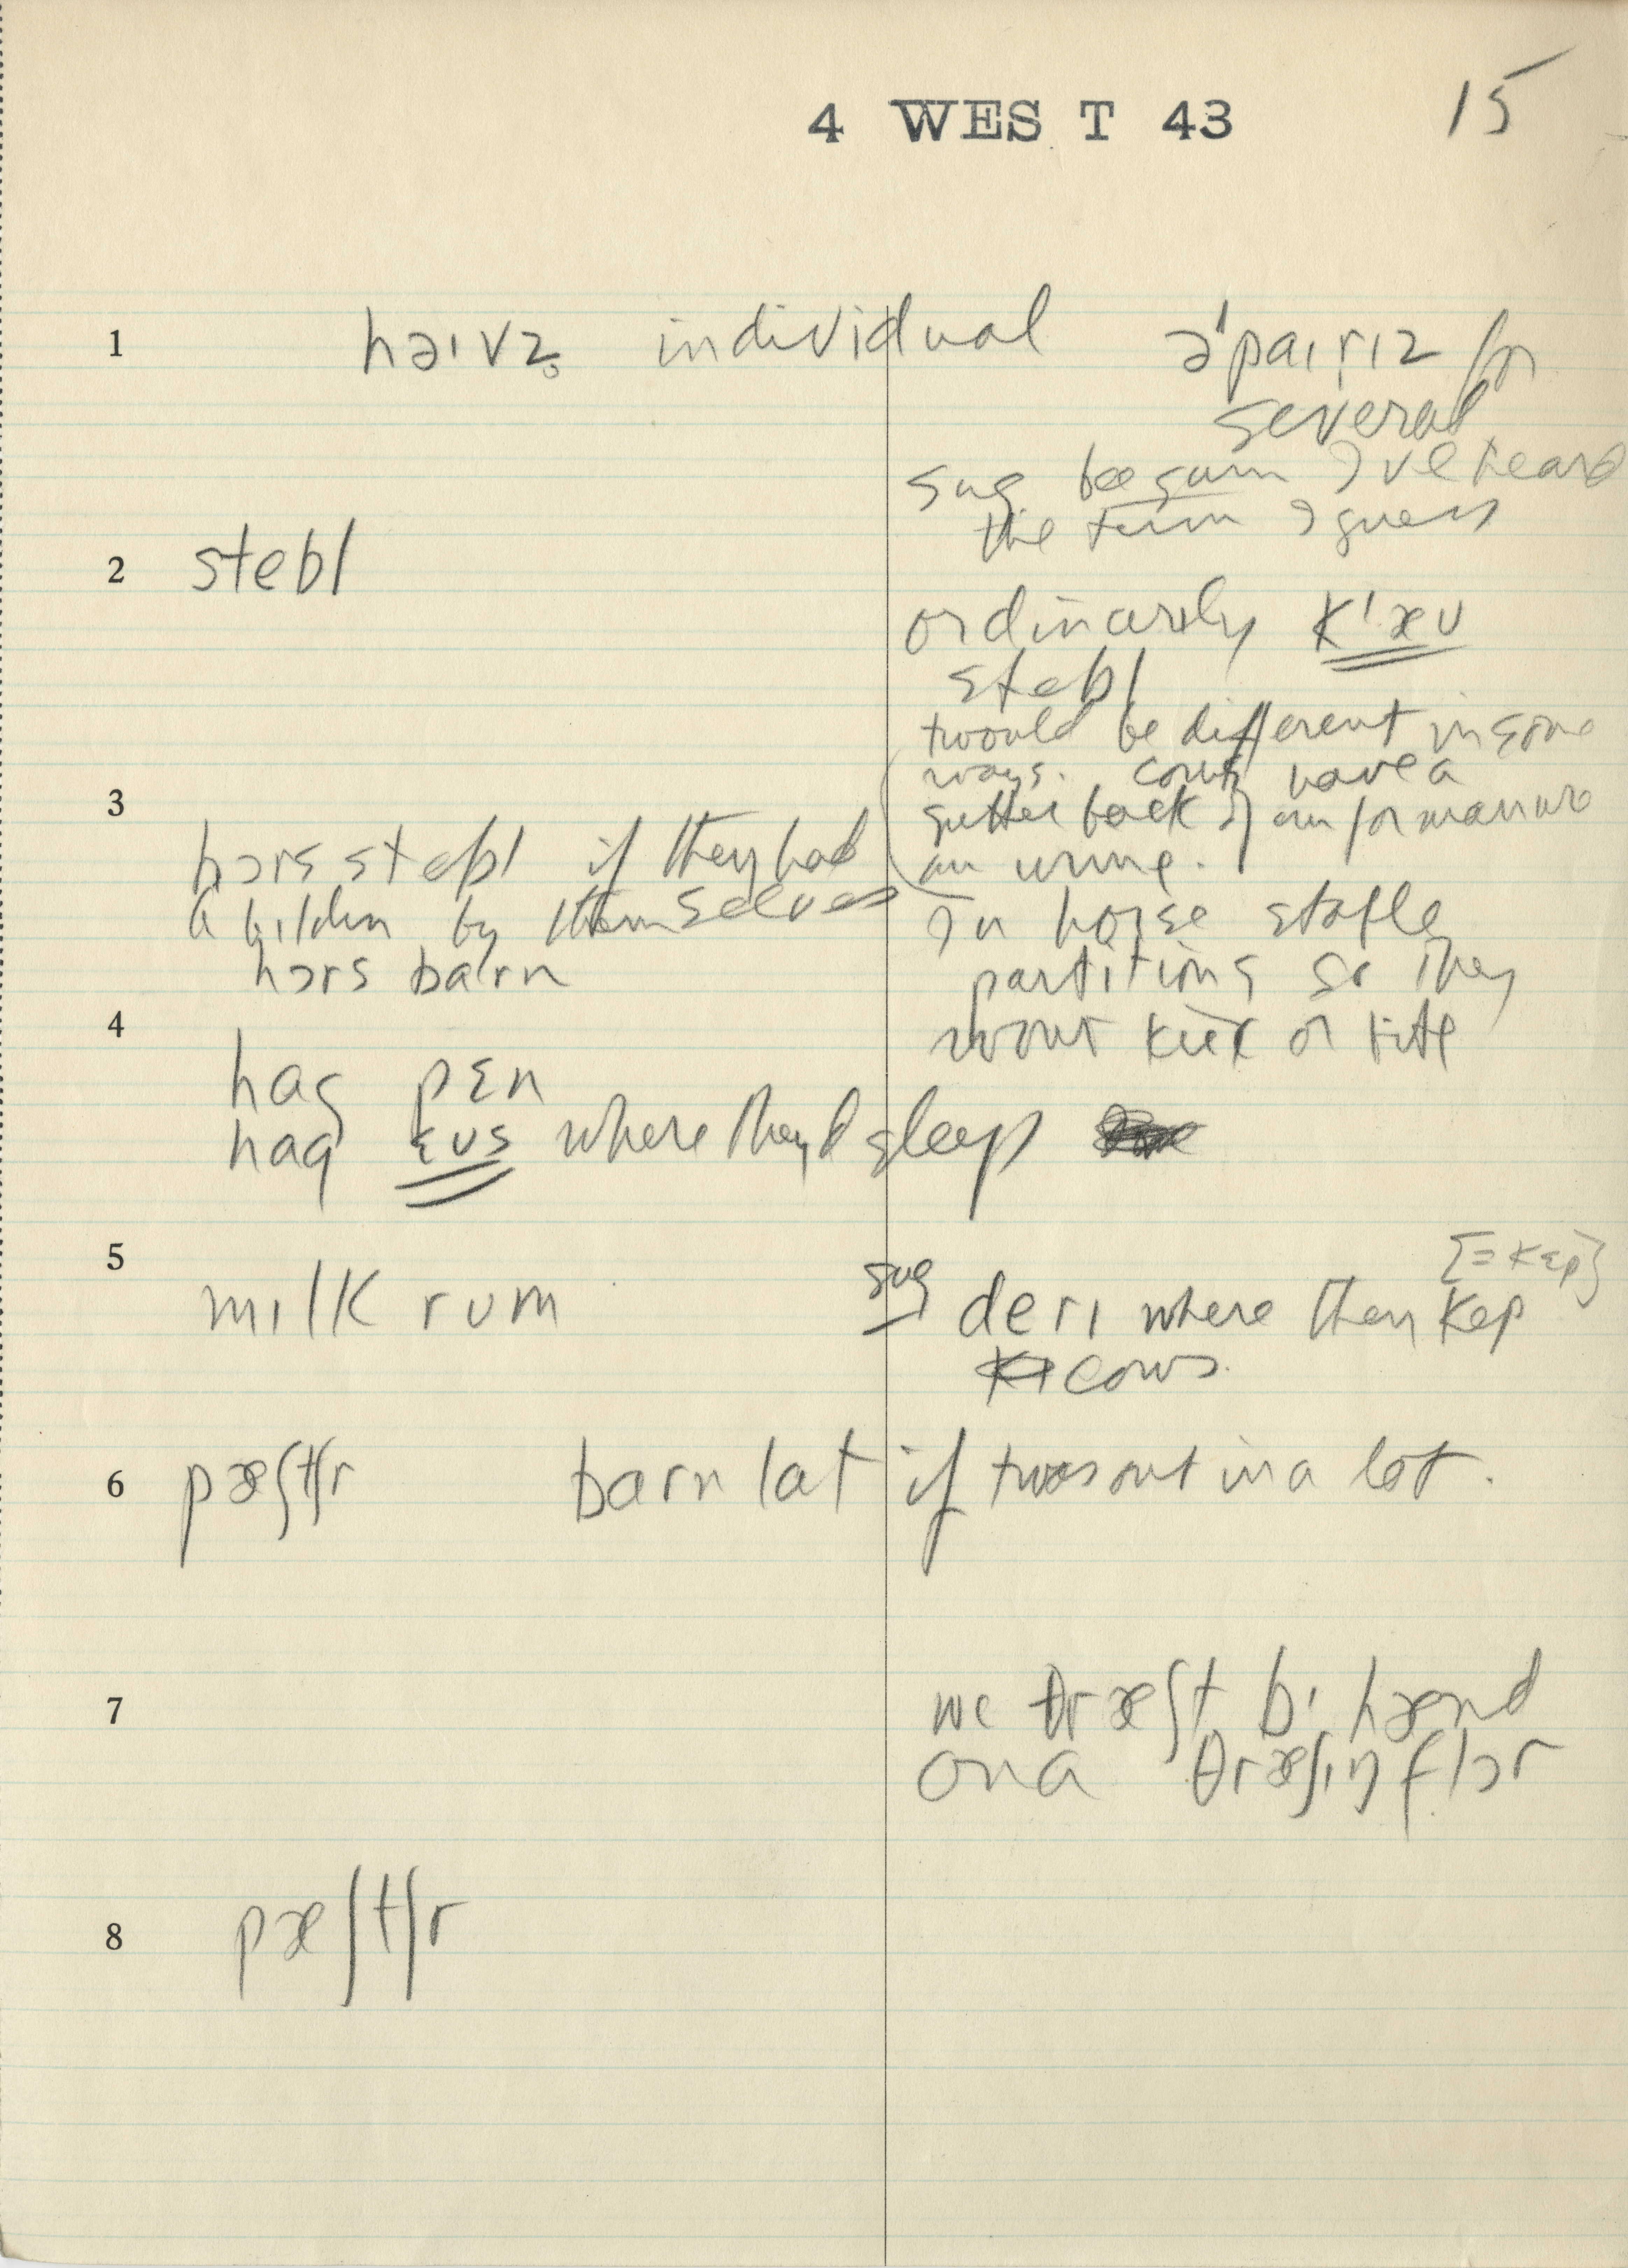 4 WEST 43 15
1 həɪvz̥ individual ə'paɪrɪz for
several
sug bee gum I've heard
the term I guess
2 stebl
ordinarily k'æʊ
stebl
twould be different in some
ways. cows have a
3 gutter back of em for manure
an urine.
hɔrs stebl if they had
a bildin by themselves
In horse stable
hɔrs barn
partitions so they
4 wont kick or bite
hag pɛn
hag ɛʊs where they'd sleep
5 [=kɛp]
mɪlk rum sug derɪ where they kep
cows.
6 pæʃtʃr barn lat if twas out in a lot.
7 we θræʃt bɪ hænd
on a θræʃɪŋ flɔr
8 pæʃtʃr